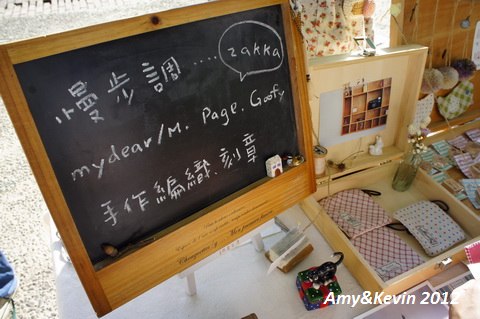 慢步調‥‥ zakka
mydear/M. Page. Goofy
手作編織.刻章
Amy&Kevin 2012